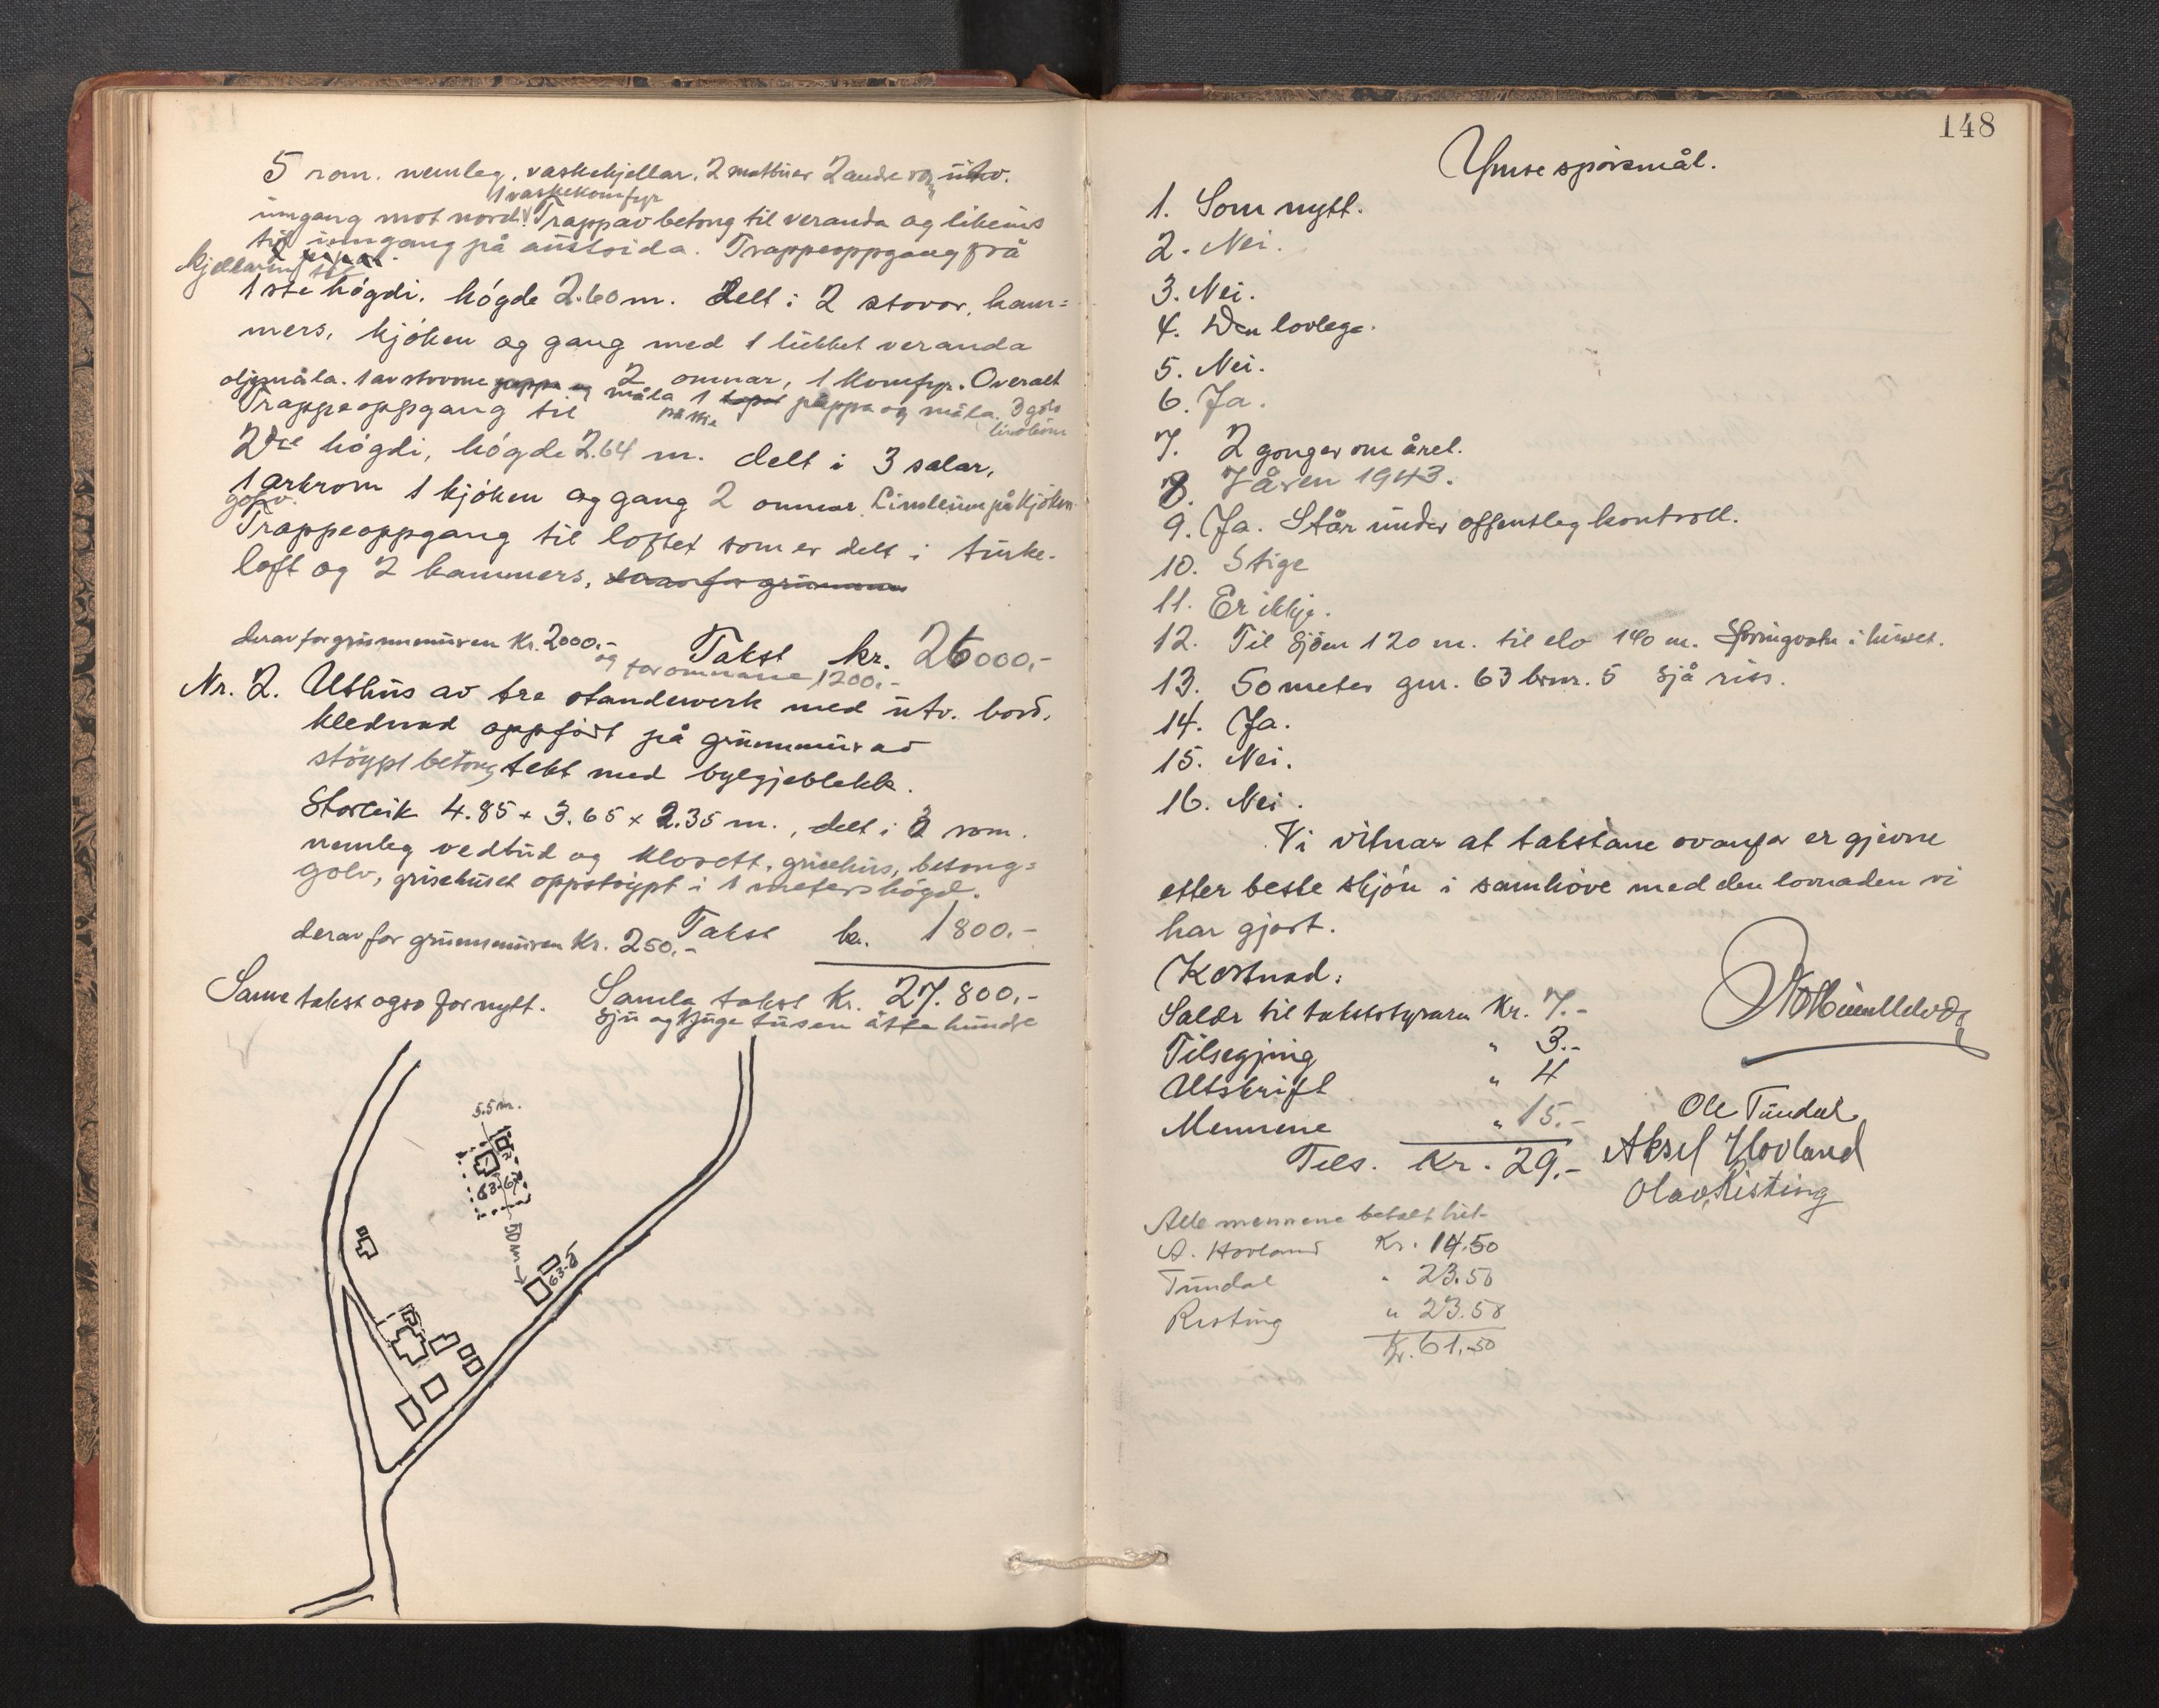 5 rom. nemleg, vaskekjellar, 2 matbuer 2 andre rom utv.
1 vaskekomfyr
inngang mot nord. Trapp av betong til veranda og likeins
til inngang på austsida. Trappeoppgang frå
kjellaren til
1ste högdi, högde 2.60 m. Delt i 2 stovor, kam=
mers, kjöken og gang med 1 lukket veranda
2 omnar, 1 komfyr. Overalt
oljemåla. 1 av stovone pappa og måla 1 tapet pappa og måla. 3 golv
linoleum
Trappeoppgang til
2dre högdi, högde 2.64 m. delt i 3 salar,
1 arkrom 1 kjöken og gang 2 omnar. Linoleum på kjöken
golv.
Trappeoppgang til loftet som er delt i turke-
loft og 2 kammers,
derav for grunnmuren Kr. 2000.-
og for omnane 1200.-
Takst kr. 26000,-
Nr. 2. Uthus av tre standewerk med utv. bord,
klednad oppfört på grunnmur av
stöypt betong tekt med bylgjeblekk.
Storleik 4.85 x 3.65 x 2.35 m., delt i 3 rom.
nemleg vedbud og klosett, grisehus, betong=
golv, grisehuset oppstöypt i 1 meters högd.
derav for grunnmuren Kr. 250.-
Takst kr. 1800.-
Same takst ogso for nytt. Samla takst Kr. 27.800.-
sju og tjuge tusen åtte hundre
5.5 m.
63-67
50 m
63-5
148
Ymse spörsmål.
1. Som nytt.
2. Nei.
3. Nei.
4. Den lovlege.
5. Nei.
6. Ja.
7. 2 gonger om året.
8. I åren 1943.
9. Ja. Står under offentleg kontroll.
10. Stige
11. Er ikkje.
12. Til Sjöen 120 m. til elv 140 m. Springvatn i huset.
13. 50 meter gnr. 63 brnr. 5 Sjå riss.
14. Ja.
15. Nei.
16. Nei.
Vi vitnar at takstane ovanfor er gjevne
etter beste skjön i samhöve med den lovnaden vi
har gjort.
Kostnad:
Salær til takststyraren Kr. 7.-
Tilsegjing " 3.-
Utskrift " 4
Mennene " 15.-
Tils. Kr. 29.-
Ole Tundal
Aksel Hovland
Olav Risting
Alle mennene betalt hit-
A. Hovland Kr. 14.50
Tundal " 23.50
Risting " 23.50
Kr. 61.50